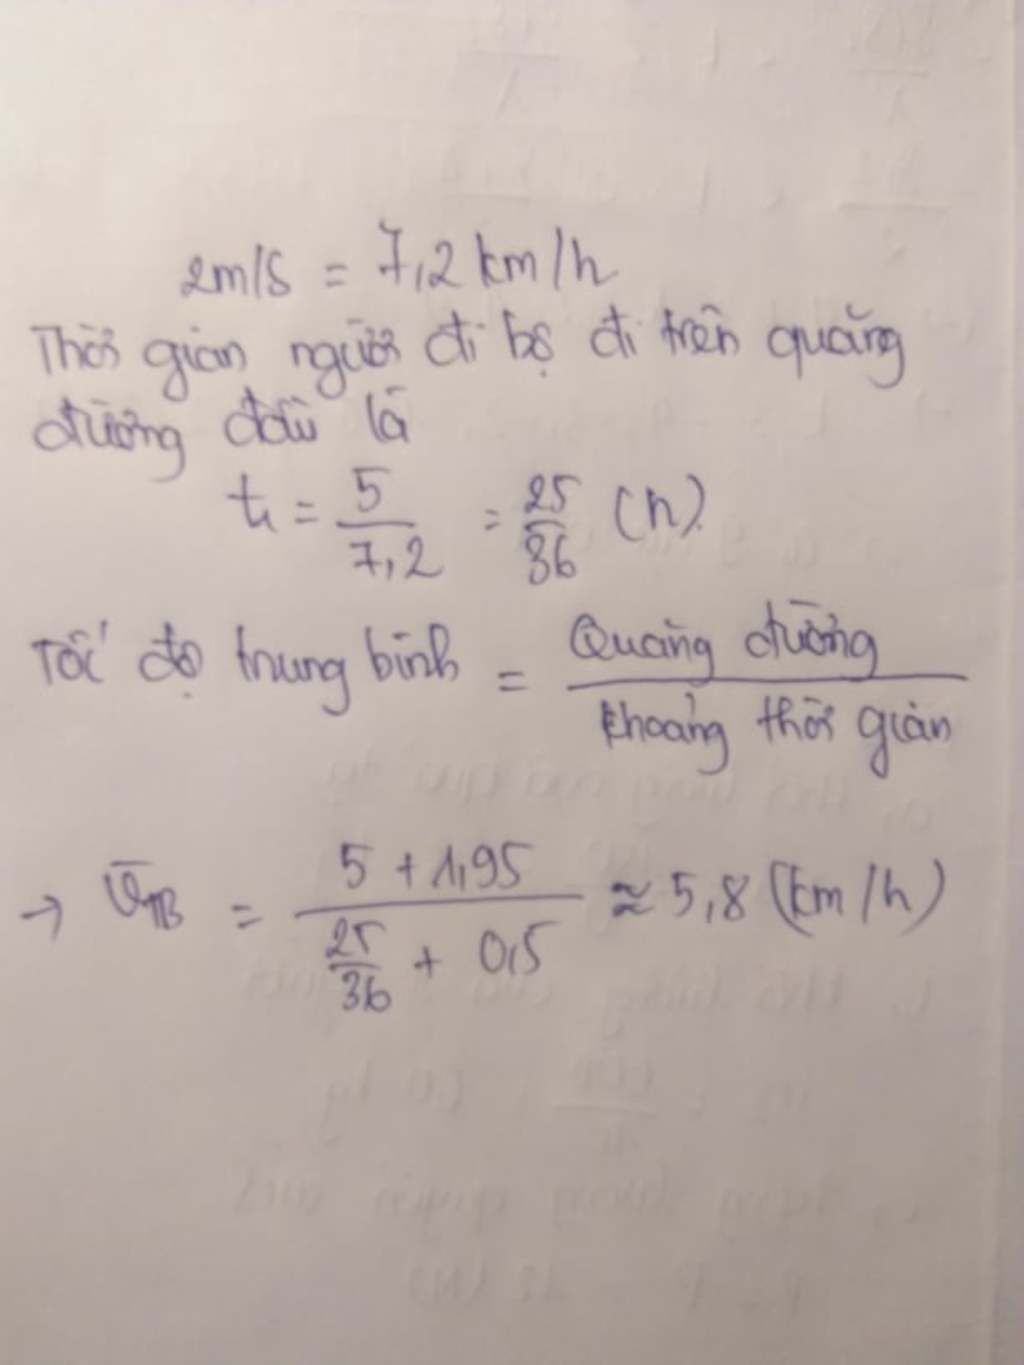 2m/s = 7,2 km/h
Thời gian người đi bộ đi trên quãng
đường đầu là
t₁ = 5/7,2 = 25/36 (h).
Tốc độ trung bình = Quãng đường/khoảng thời gian
→ v̄TB = (5 + 1,95)/(25/36 + 0,5) ≈ 5,8 (km/h)